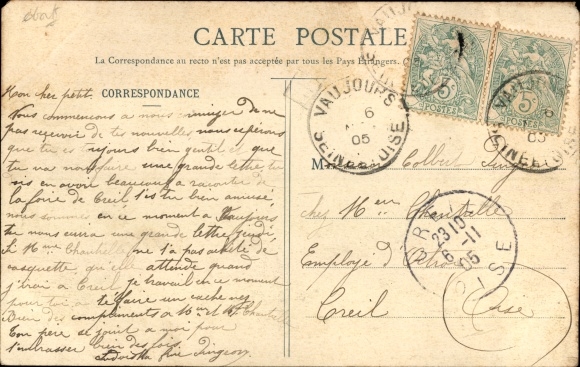 CARTE POSTALE
La Correspondance au recto n'est pas acceptée par tous les Pays Etrangers.
CORRESPONDANCE
Mon cher petit.
Nous commençons à nous ennuyer de ne
pas recevoir de tes nouvelles nous espérons
que tu es toujours bien gentil et que
tu va nous faire une grande lettre tu
dois en avoir beaucoup à raconter de
la foire de Creil t'es tu bien amusé,
nous sommes en ce moment à Vaujours
tu nous une grande lettre jeudi.
Si Mme Chantelle ne t'a pas acheté de
casquette, qu'elle attende quand
j'irai à Creil, je travail en ce moment
pour toi à te faire un cache nez
Bien des compliments à Mme et Mr Chantelle
Ton père se joint a moi pour
t'embrasser bien des fois
VAUJOURS
6
05
SEINE ET OISE
5
POSTES
5
POSTES
VAUJOURS
6
05
SEINE ET OISE
M Colbert
chez Mme Chantelle
Employé
Creil Oise
CREIL
23 10
6 -11
05
OISE